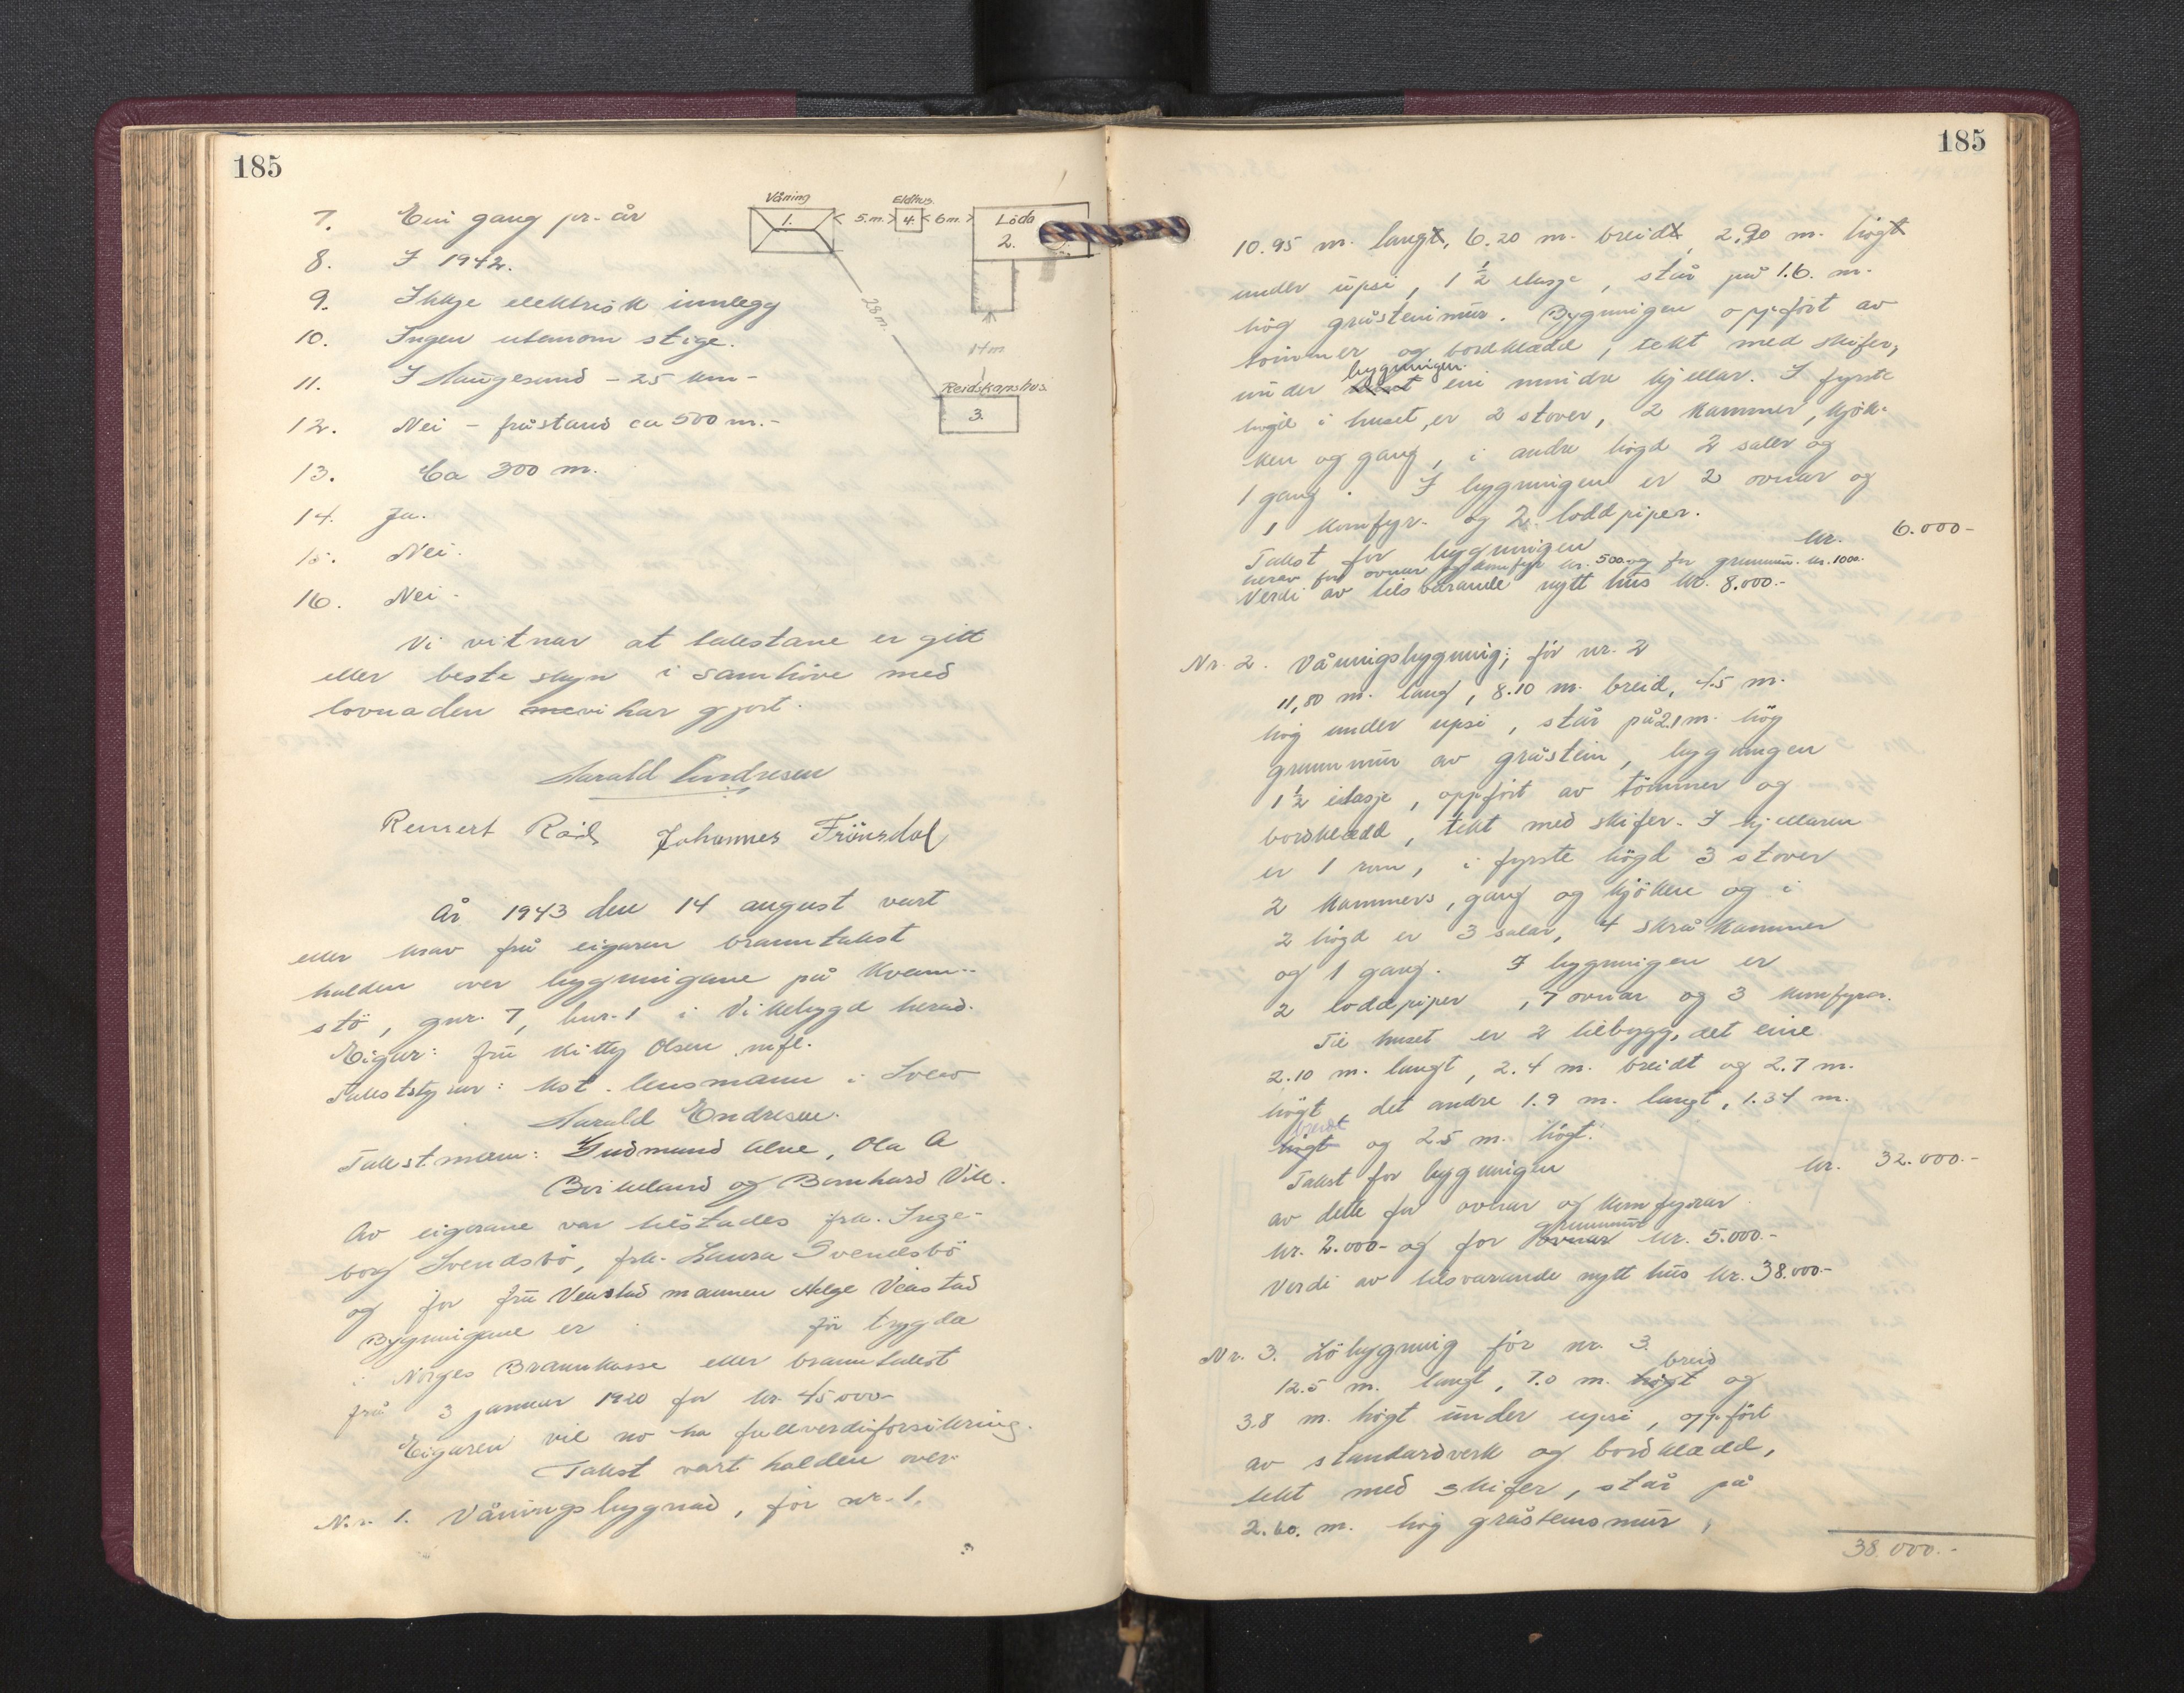 185
7. Ein gang pr. år
8. I 1942.
9. Ikkje elektrisk innlegg
10. Ingen utenom stige.
11. I Haugesund - 25 km -
12. Nei - fråstand ca 500 m.-
13. Ca 300 m.
14. Ja.
15. Nei.
16. Nei.
Våning
1.
5. m.
Eldhus.
4.
6 m.
Löda
2.
28 m.
14 m
Reidskapshus.
3.
Vi vitnar at takstane er gitt
etter beste skyn i samhöve med
lovnaden vi har gjort.
Harald Endresen
Johannes Frönsdal
År 1943 den 14 august vart
etter krav frå eigaren branntakst
halden over bygningane på Kvam-
stö, gnr. 7, bnr. 1 i Vikebygd herad.
Eigar: fru Kitty Olsen m.fl.
Takststyrar: Kst. lensmann i Sveio
Harald Endresen.
Takstmenn: Gudmund Alne, Ola A
Birkeland og Bernhard Vik.
Av eigarane var tilstades frk. Inge-
borg Svendsbö, frk. Laura Svendsbö
og for fru Venstad mannen Helge Venstad
Bygningane er för trygda
i Norges Brannkasse etter branntakst
frå 3 januar 1920 for kr. 45000-
Eigaren vil no ha fullverdiforsikring.
Takst vart halden over
Nr. 1. Våningsbygnad, för nr. 1.
185
10.95 m. langt, 6.20 m. breidt, 2,90 m. högt
under upsi, 1 1/2 etasje, står på 1.6. m.
hög gråsteinmur. Bygningen oppfört av
tömmer og bordklædd, tekt med skifer,
under bygningen ein mindre kjellar. I fyrste
högd i huset, er 2 stover, 2 kammer, kjök-
ken og gang, i andre högd 2 saler og
1 gang. I bygningen er 2 ovnar og
1 komfyr. og 2. loddpiper.
Takst for bygningen kr. 6.000-
herav for ovnar og komfyr kr. 500 og for grunnmur. kr. 1000.
Verdi av tilsvarande nytt hus kr. 8.000.-
Nr. 2. Våningsbygning; för nr. 2
11,80 m. lang, 8.10 m. breid, 4.5 m.
hög under upsi, står på 2.1 m. hög
grunnmur av gråstein, bygningen
1 1/2 etasje, oppfört av tömmer og
bordklædd, tekt med skifer. I kjellaren
er 1 rom, i fyrste högd 3 stover
2 kammers, gang og kjöken og i
2 högd er 3 salar, 4 skråkammer
og 1 gang. I bygningen er
2 loddpiper, 7 ovnar og 3 komfyrar.
Til huset er 2 tilbygg, det eine
2.10 m. langt, 2.4 m. breidt og 2.7 m.
högt, det andre 1.9 m. langt, 1.34 m.
högt breidt og 2.5 m. högt.
Takst for bygningen kr. 32.000.-
av dette for ovnar og komfyrar
kr. 2.000- og for ovnar grunnmur kr. 5.000.-
Verdi av tilsvarande nytt hus kr. 38.000-
Nr. 3. Löbygning för nr. 3.
12.5 m. langt, 7.0 m. högt breid og
3.8 m. högt under upsi, oppfört
av standardverk og bordklædd,
tekt med skifer, står på
2.60. m. hög gråsteinsmur,
38.000.-